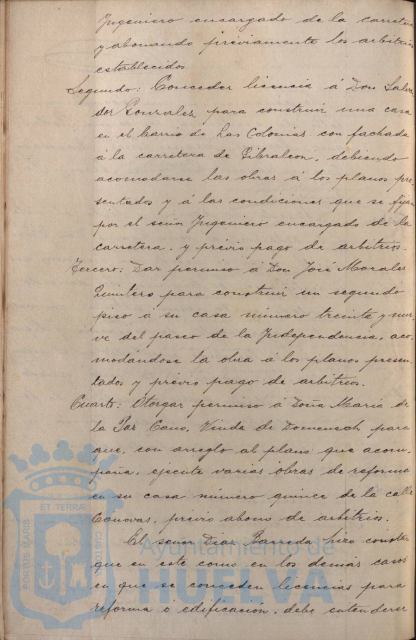 Ingeniero encargado de la carretera
y abonando previamente los arbitrios
establecidos
Segundo: Conceder licencia á Don Salva
dor Gonzalez para construir una casa
en el barrio de Las Colonias con fachada
á la carretera de Gibraleon, debiendo
acomodarse las obras á los planos pre
sentados y á las condiciones que se fijen
por el señor Ingeniero encargado de la
carretera, y previo pago de arbitrios.
Tercero: Dar permiso á Don José Morales
Quintero para construir un segundo
piso á su casa número treinta y nue
ve del paseo de la Independencia, aco
modándose la obra á los planos presen
tados y previo pago de arbitrios.
Cuarto: Otorgar permiso á Doña María de
la Paz Cano, Viuda de Domenech para
que, con arreglo al plano que acom
paña, ejecute varias obras de reforma
en su casa número quince de la calle
Canovas, previo abono de arbitrios.
El señor Diaz Barreda hizo constar
que en este como en los demás casos
en que se conceden licencias para
reforma o edificación, debe entenderse
PORTUS MARIS ET TERRAE CUSTODIA
Ayuntamiento de
HUELVA